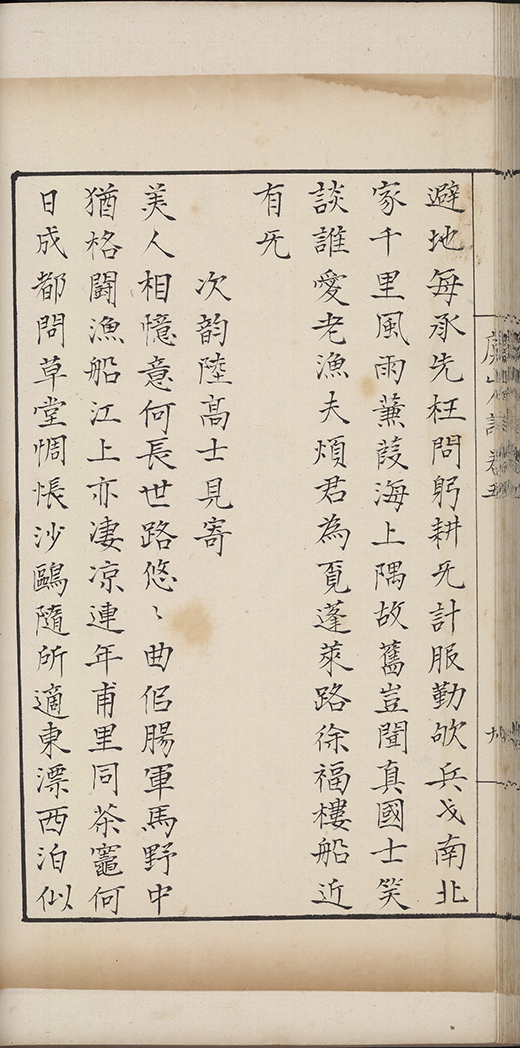 避地每承先枉問躬耕旡計服勤欨兵戈南北
家千里風雨蒹葭海上隅故舊豈聞真國士笑
談誰愛老漁夫煩君為覓蓬萊路徐福樓船近
有旡
次韵陸高士見寄
美人相憶意何長世路悠〻曲侶腸軍馬野中
猶格鬪漁船江上亦凄凉連年甫里同茶竈何
日成都問草堂惆悵沙鷗隨所適東漂西泊似
卷五
九